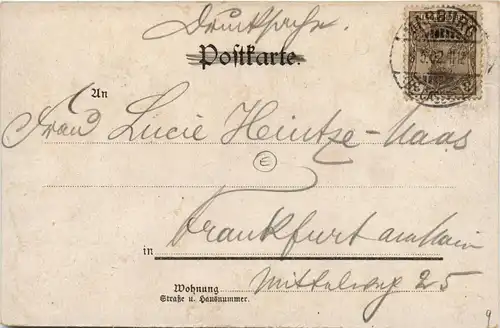 Drucksache.
Postkarte.
MARBURG
An
Frau Lucie Heintze-Maas
E
Frankfurt am Main
in
Mittelweg 25
Wohnung
Straße u. Hausnummer.
9